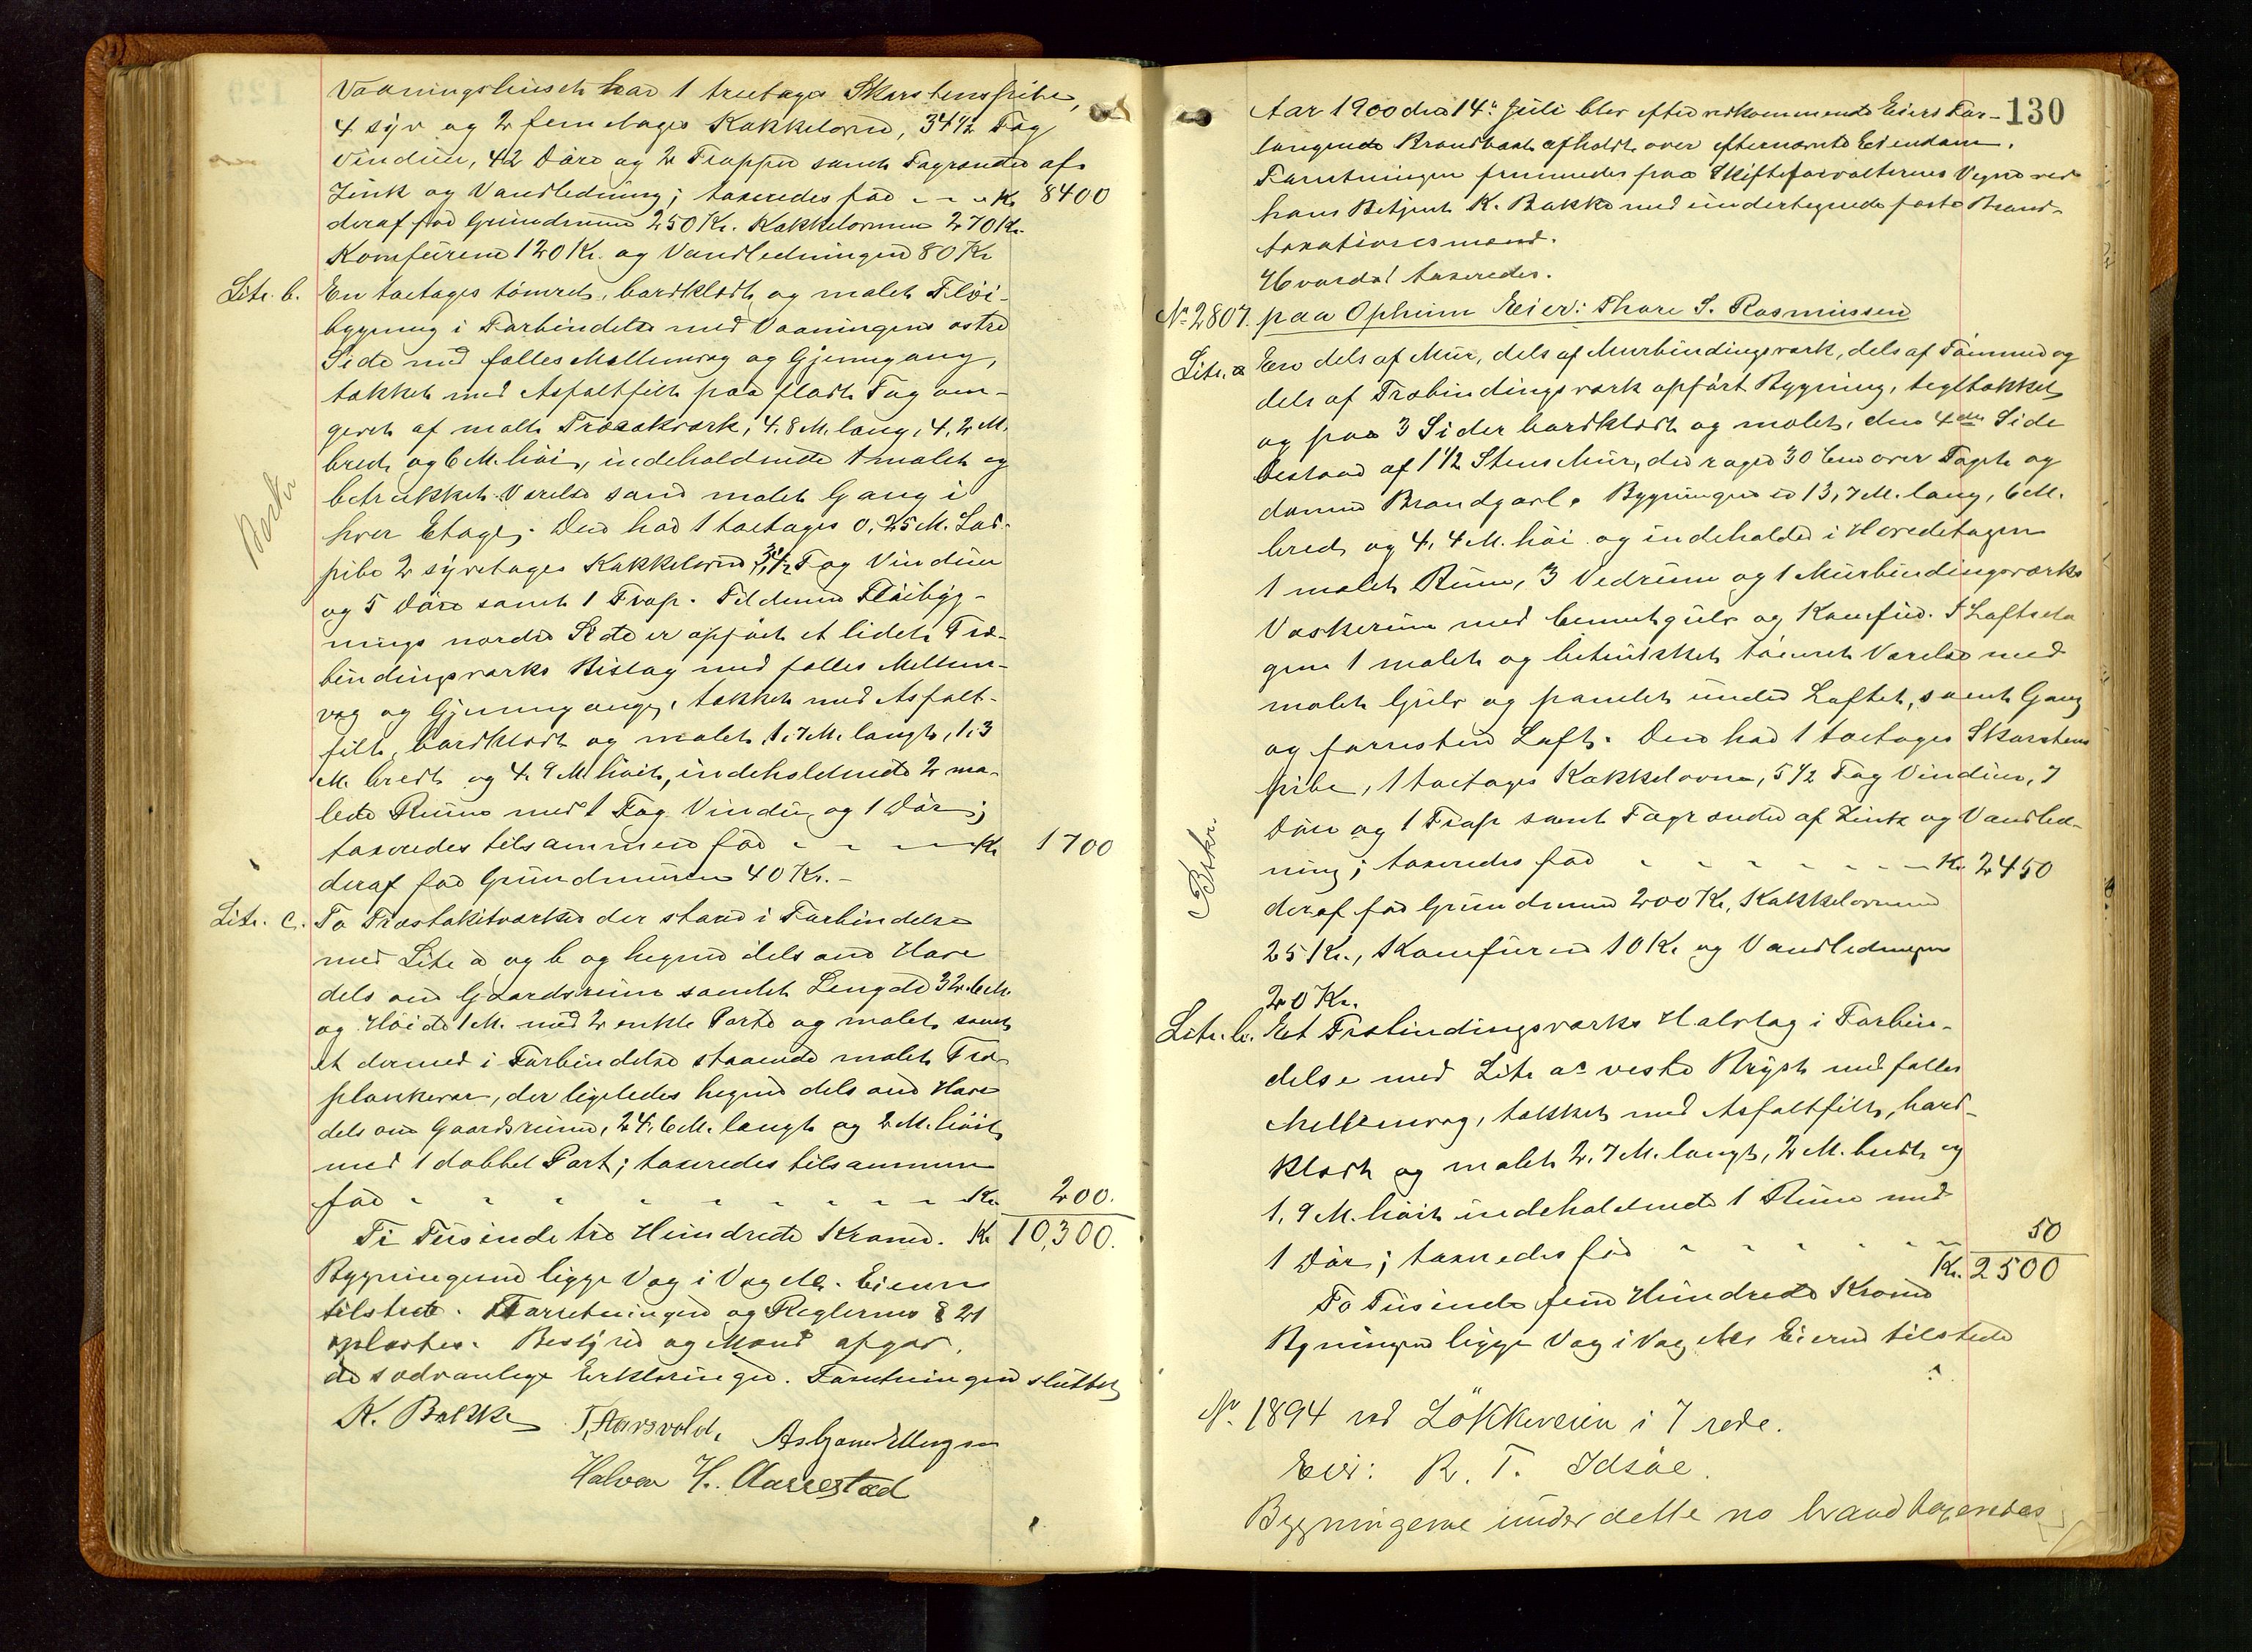 Vaaningshuset har 1 treetages Skorstenspibe,
4 syv og 2 femetages Kakkelovne, 34 1/2 Fag
Vinduer, 42 Döre og 2 Trapper samt Tagrender af
Zink og Vandledning; taxeredes for - - - Kr 8400
deraf for Grundmuren 250 Kr. Kakkelovnene 270 Kr.
Komfürene 120 Kr. og Vandledningen 80 Kr
Litr. b. En toetages tömret, bordklædt og malet Flöi-
bygning i Forbindelse med Vaaningens östre
Side med fælles Mellemvæg og Gjennemgang,
tækket med Asfaltfilt paa fladt Tag om-
givet af malet Træstakværk, 4.8 M. lang, 4,2 M.
bred og 6 M. höi, indeholdende 1 malet og
betrukket Værelse samt malet Gang i
hver Etage. Den har 1 toetages 0,25 M. Lös-
pibe 2 syvetages Kakkelovne, 3 1/2 Fag Vinduer
og 5 Döre samt 1 Trap. Til denne Flöibyg-
nings nordre Side er opfört et lidet Træ-
bindingsværks Bislag med fælles Mellem-
væg og Gjennemgang, tækket med Asfalt-
filt, bordklædt og malet, 1,7 M. langt, 1,3
M. bredt og 4,9 M. höit, indeholdende 2 ma-
lede Rum med 1 Fag Vindu og 1 Dör;
taxeredes tilsammen for - - - Kr 1700
deraf for Grundmuren 40 Kr. -
Litr. c. To Træstakitværker der staar i Forbindelse
med Litr a og b og hegner dels om Have
dels om Gaardsrum samlet Længde 32.6 M.
og Höide 1 M. med 2 enkle Porte og malet samt
et dermed i Forbindelse staaende malet Træ-
plankevær, der ligeledes hegner dels om Have
dels om Gaardsrum, 24,6 M. langt og 2 M. höit
med 1 dobbel Port; taxeredes tilsammen
for - - - - - - - - Kr. 200.
Ti Tusinde tre Hundrede Kroner. Kr 10,300.
Bygningerne ligge Væg i Væg M. Eieren
tilstede. Forretningen og Reglernes § 21
oplæstes. Bestyrer og Mænd afgav
de sædvanlige Erklæringer. Forretningen sluttet
K. Bakke T. Aarsvold, Asbjørn Ellingsen
Halvor H. Aarrestad
130
Aar 1900 den 14. Juli blev efter vedkommende Eiers For-
langende Brandtaxt afholdt over efternævnte Eiendom.
Forretningen fremmedes paa Skifteforvalterens Vegne ved
hans Betjent K. Bakke med undertegnede faste Brand-
taxationsmænd.
Hvorda taxeredes.
No 2807. paa Ophuim Eier: Thore S. Rasmussen
Litr. a En dels af Mur, dels af Murbindingsværk, dels af Tömmer og
dels af Træbindingsværk opfört Bygning, tegltækket
og paa 3 Sider bordklædt og malet, den 4de Side
bestaar af 1 1/2 Stens Mur, der rager 30 Cm over Taget og
danner Brandgavl. Bygningen er 13,7 M. lang, 6 M.
bred og 4,4 M. höi og indeholder i Hovedetagen
1 malet Rum, 3 Vedrum og 1 Murbindingsværks
Vaskerum med Cementgulv og Komfur. I Loftseta
gen 1 malet og betrukket tömret Værelse med
malet Gulv og panelet under Loftet, samt Gang
og forresten Loft. Den har 1 toetages Skorstens
pibe, 1 toetages Kakkelovn, 5 1/2 Fag Vinduer, 7
Döre og 1 Trap samt Tagrender af Zink og Vandled-
ning; taxeredes for - - - - - - - Kr. 2450
deraf for Grundmuren 200 Kr, Kakkelovnene
25 Kr., Komfuren 10 Kr og Vandledningen
20 Kr.
Litr. b. Et Træbindingsværks Halvtag i Forbin-
delse med Litr a's vestre Bryst med fælles
Mellemvæg, tækket med Asfaltfilt, bord-
klædt og malet 2,7 M. langt, 2 M. bredt og
1,9 M. höit indeholdende 1 Rum med
1 Dör; taxeredes for - - - - - - 50
Kr. 2500
To Tusinde fem Hundrede Kroner
Bygningerne ligge Væg i Væg M. Eieren tilstede
No 1894 ved Lökkeveien i 7 rode.
Eier: R. T. Idsöe.
Bygningerne under dette no brandtaxeredes